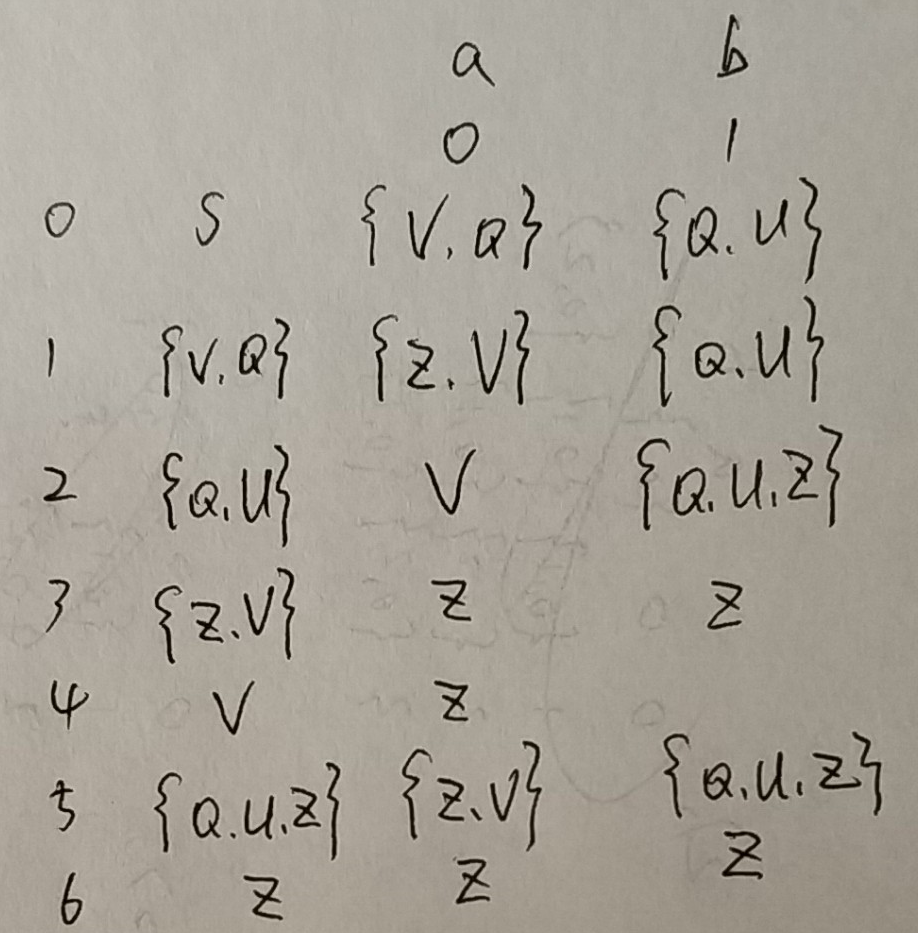 a b
0 1
0 S {V.Q} {Q.U}
1 {V.Q} {Z.V} {Q.U}
2 {Q.U} V {Q.U.Z}
3 {Z.V} Z Z
4 V Z
5 {Q.U.Z} {Z.V} {Q.U.Z}
6 Z Z Z